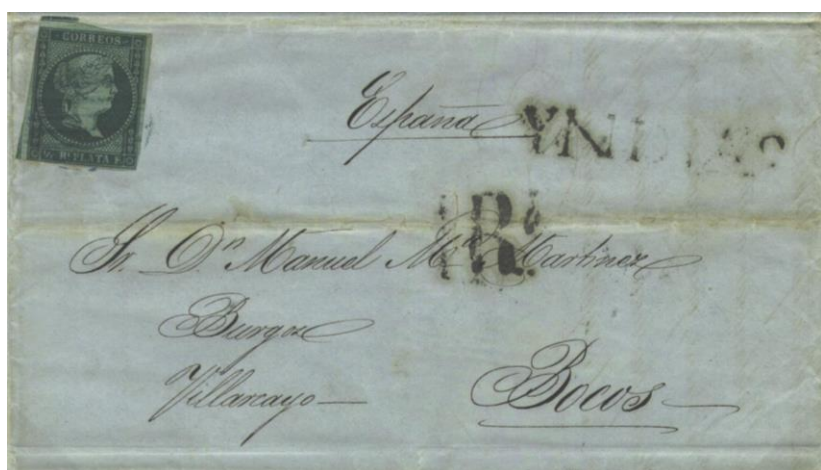 CORREOS
Rl. PLATA F.
España
YNDIAS
R
Sr. Dn. Manuel Ma. Martinez
Burgos
Villarcayo
Bocos